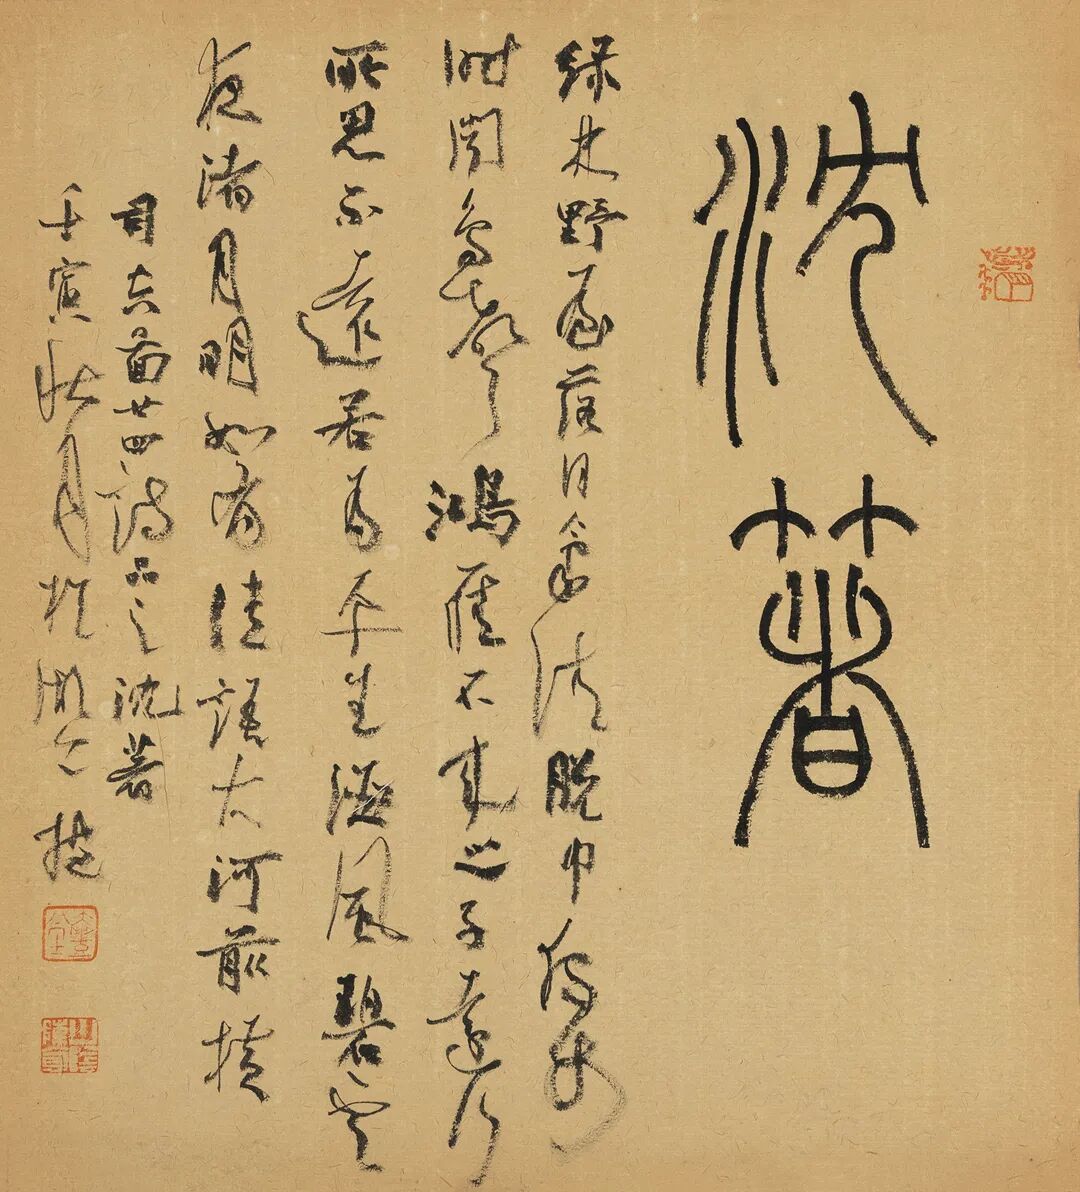 沈著
緑林野屋落日氣清脱巾獨步
時聞鳥聲鴻雁不来之子遠行
所思不遠若為平生海風碧雲
夜渚月明如有佳語大河前横
司空圖廿四詩品之沈著
壬寅秋月於